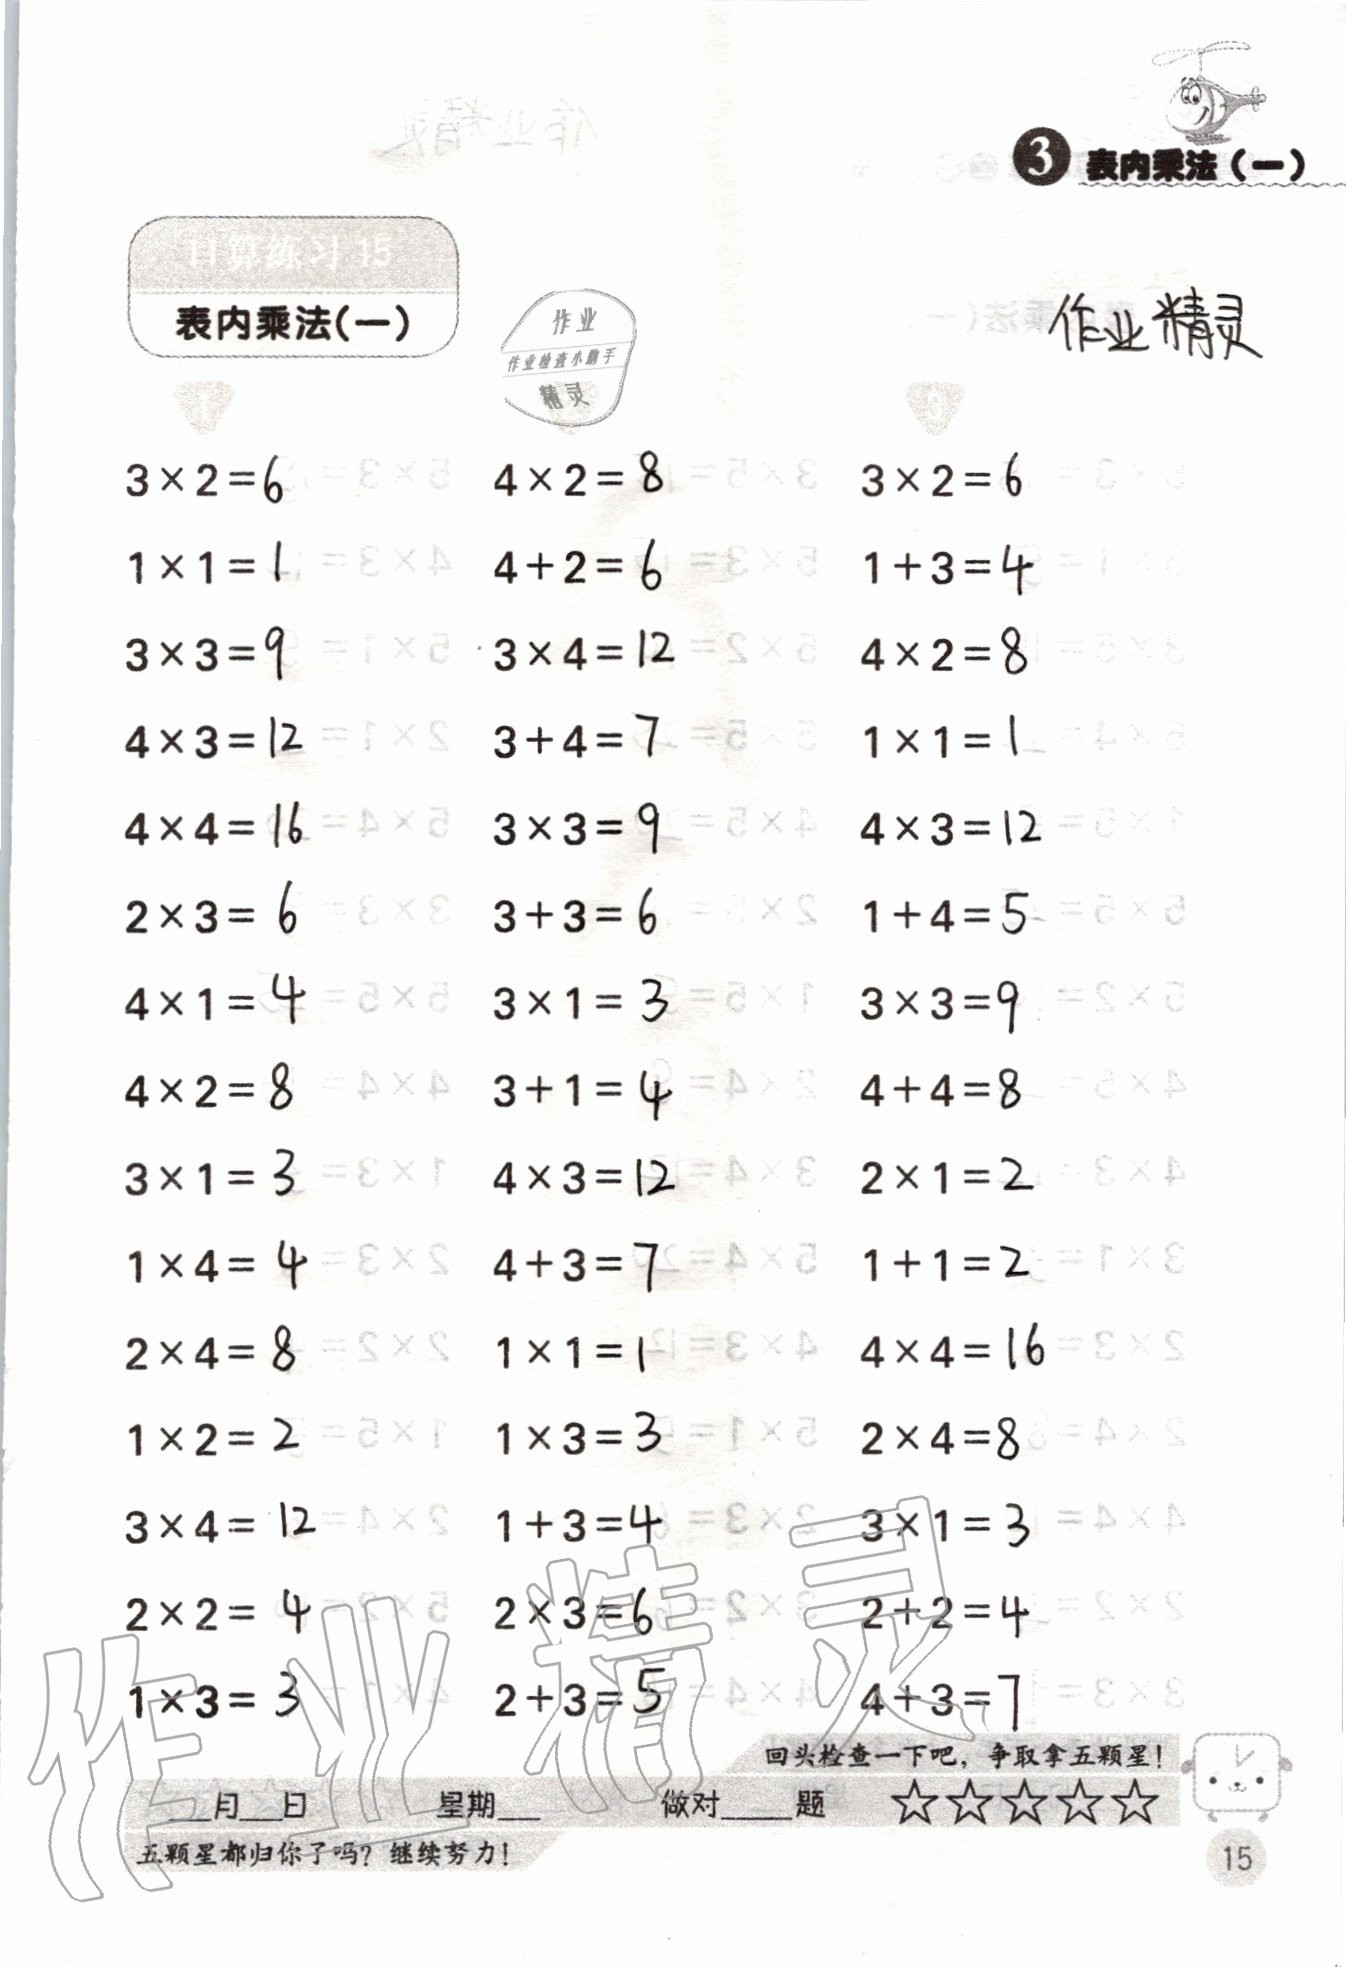 3 表内乘法（一）
口算练习 15
表内乘法(一)
作业
作业检查小助手
精灵
作业精灵
1
3
3×2=6 4×2=8 3×2=6
1×1=1 4+2=6 1+3=4
3×3=9 3×4=12 4×2=8
4×3=12 3+4=7 1×1=1
4×4=16 3×3=9 4×3=12
2×3=6 3+3=6 1+4=5
4×1=4 3×1=3 3×3=9
4×2=8 3+1=4 4+4=8
3×1=3 4×3=12 2×1=2
1×4=4 4+3=7 1+1=2
2×4=8 1×1=1 4×4=16
1×2=2 1×3=3 2×4=8
3×4=12 1+3=4 3×1=3
2×2=4 2×3=6 2+2=4
1×3=3 2+3=5 4+3=7
作业精灵
回头检查一下吧，争取拿五颗星！
__月__日 星期__ 做对____题 ☆☆☆☆☆
五颗星都归你了吗？继续努力！
15